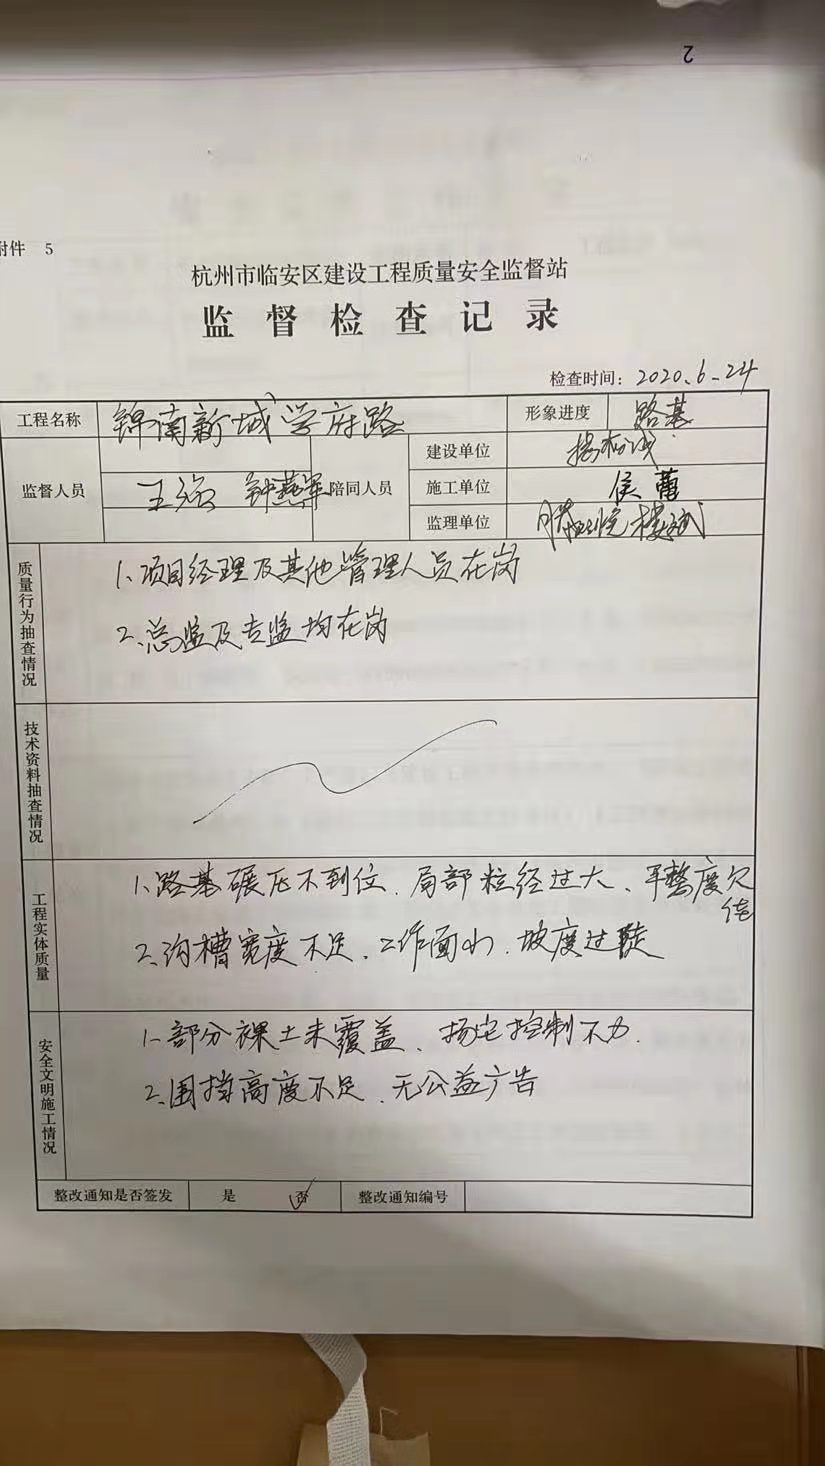 2
附件 5
杭州市临安区建设工程质量安全监督站
监督检查记录
检查时间：2020.6.24
工程名称 锦南新城学府路 形象进度 路基
监督人员 王强 钟燕军 陪同人员
建设单位
施工单位 侯蕾
监理单位
质量行为抽查情况
1、项目经理及其他管理人员在岗
2、总监及专监均在岗
技术资料抽查情况
工程实体质量
1、路基碾压不到位、局部粒经过大、平整度欠佳
2、沟槽宽度不足、工作面小、坡度过陡
安全文明施工情况
1、部分裸土未覆盖、扬尘控制不力.
2、围挡高度不足、无公益广告
整改通知是否签发 是 否 整改通知编号